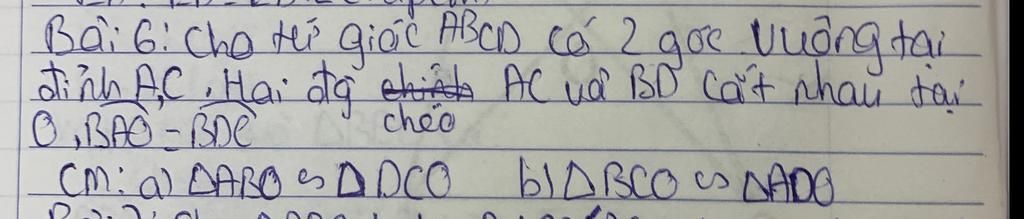 Bài 6: Cho tứ giác ABCD có 2 góc vuông tại
đỉnh A,C. Hai đg chéo AC và BD cắt nhau tại
O, BAO = BDC
CM: a) ΔABO ∽ ΔDCO b) ΔBCO ∽ ΔADO